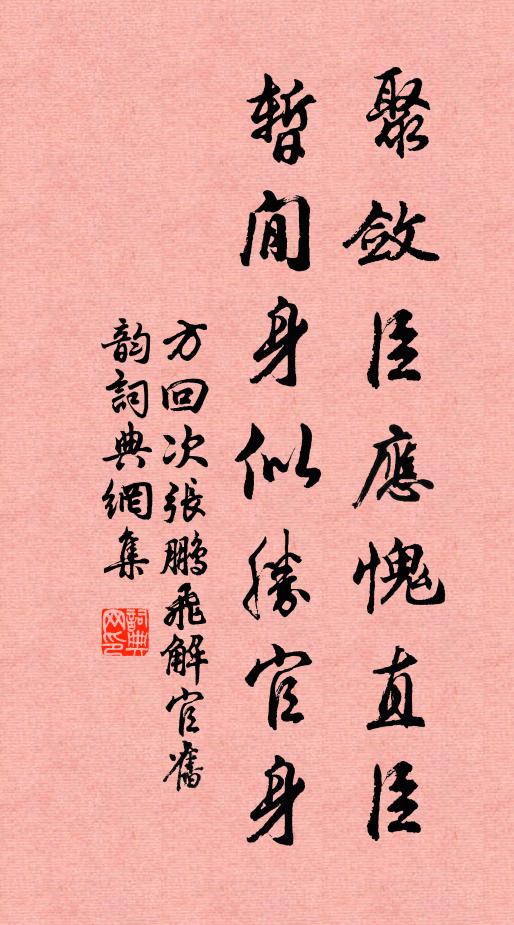 聚斂臣應愧直臣
暫閒身似勝官身
方回次張鵬飛解官舊
韵詞典網集
詞典
网印